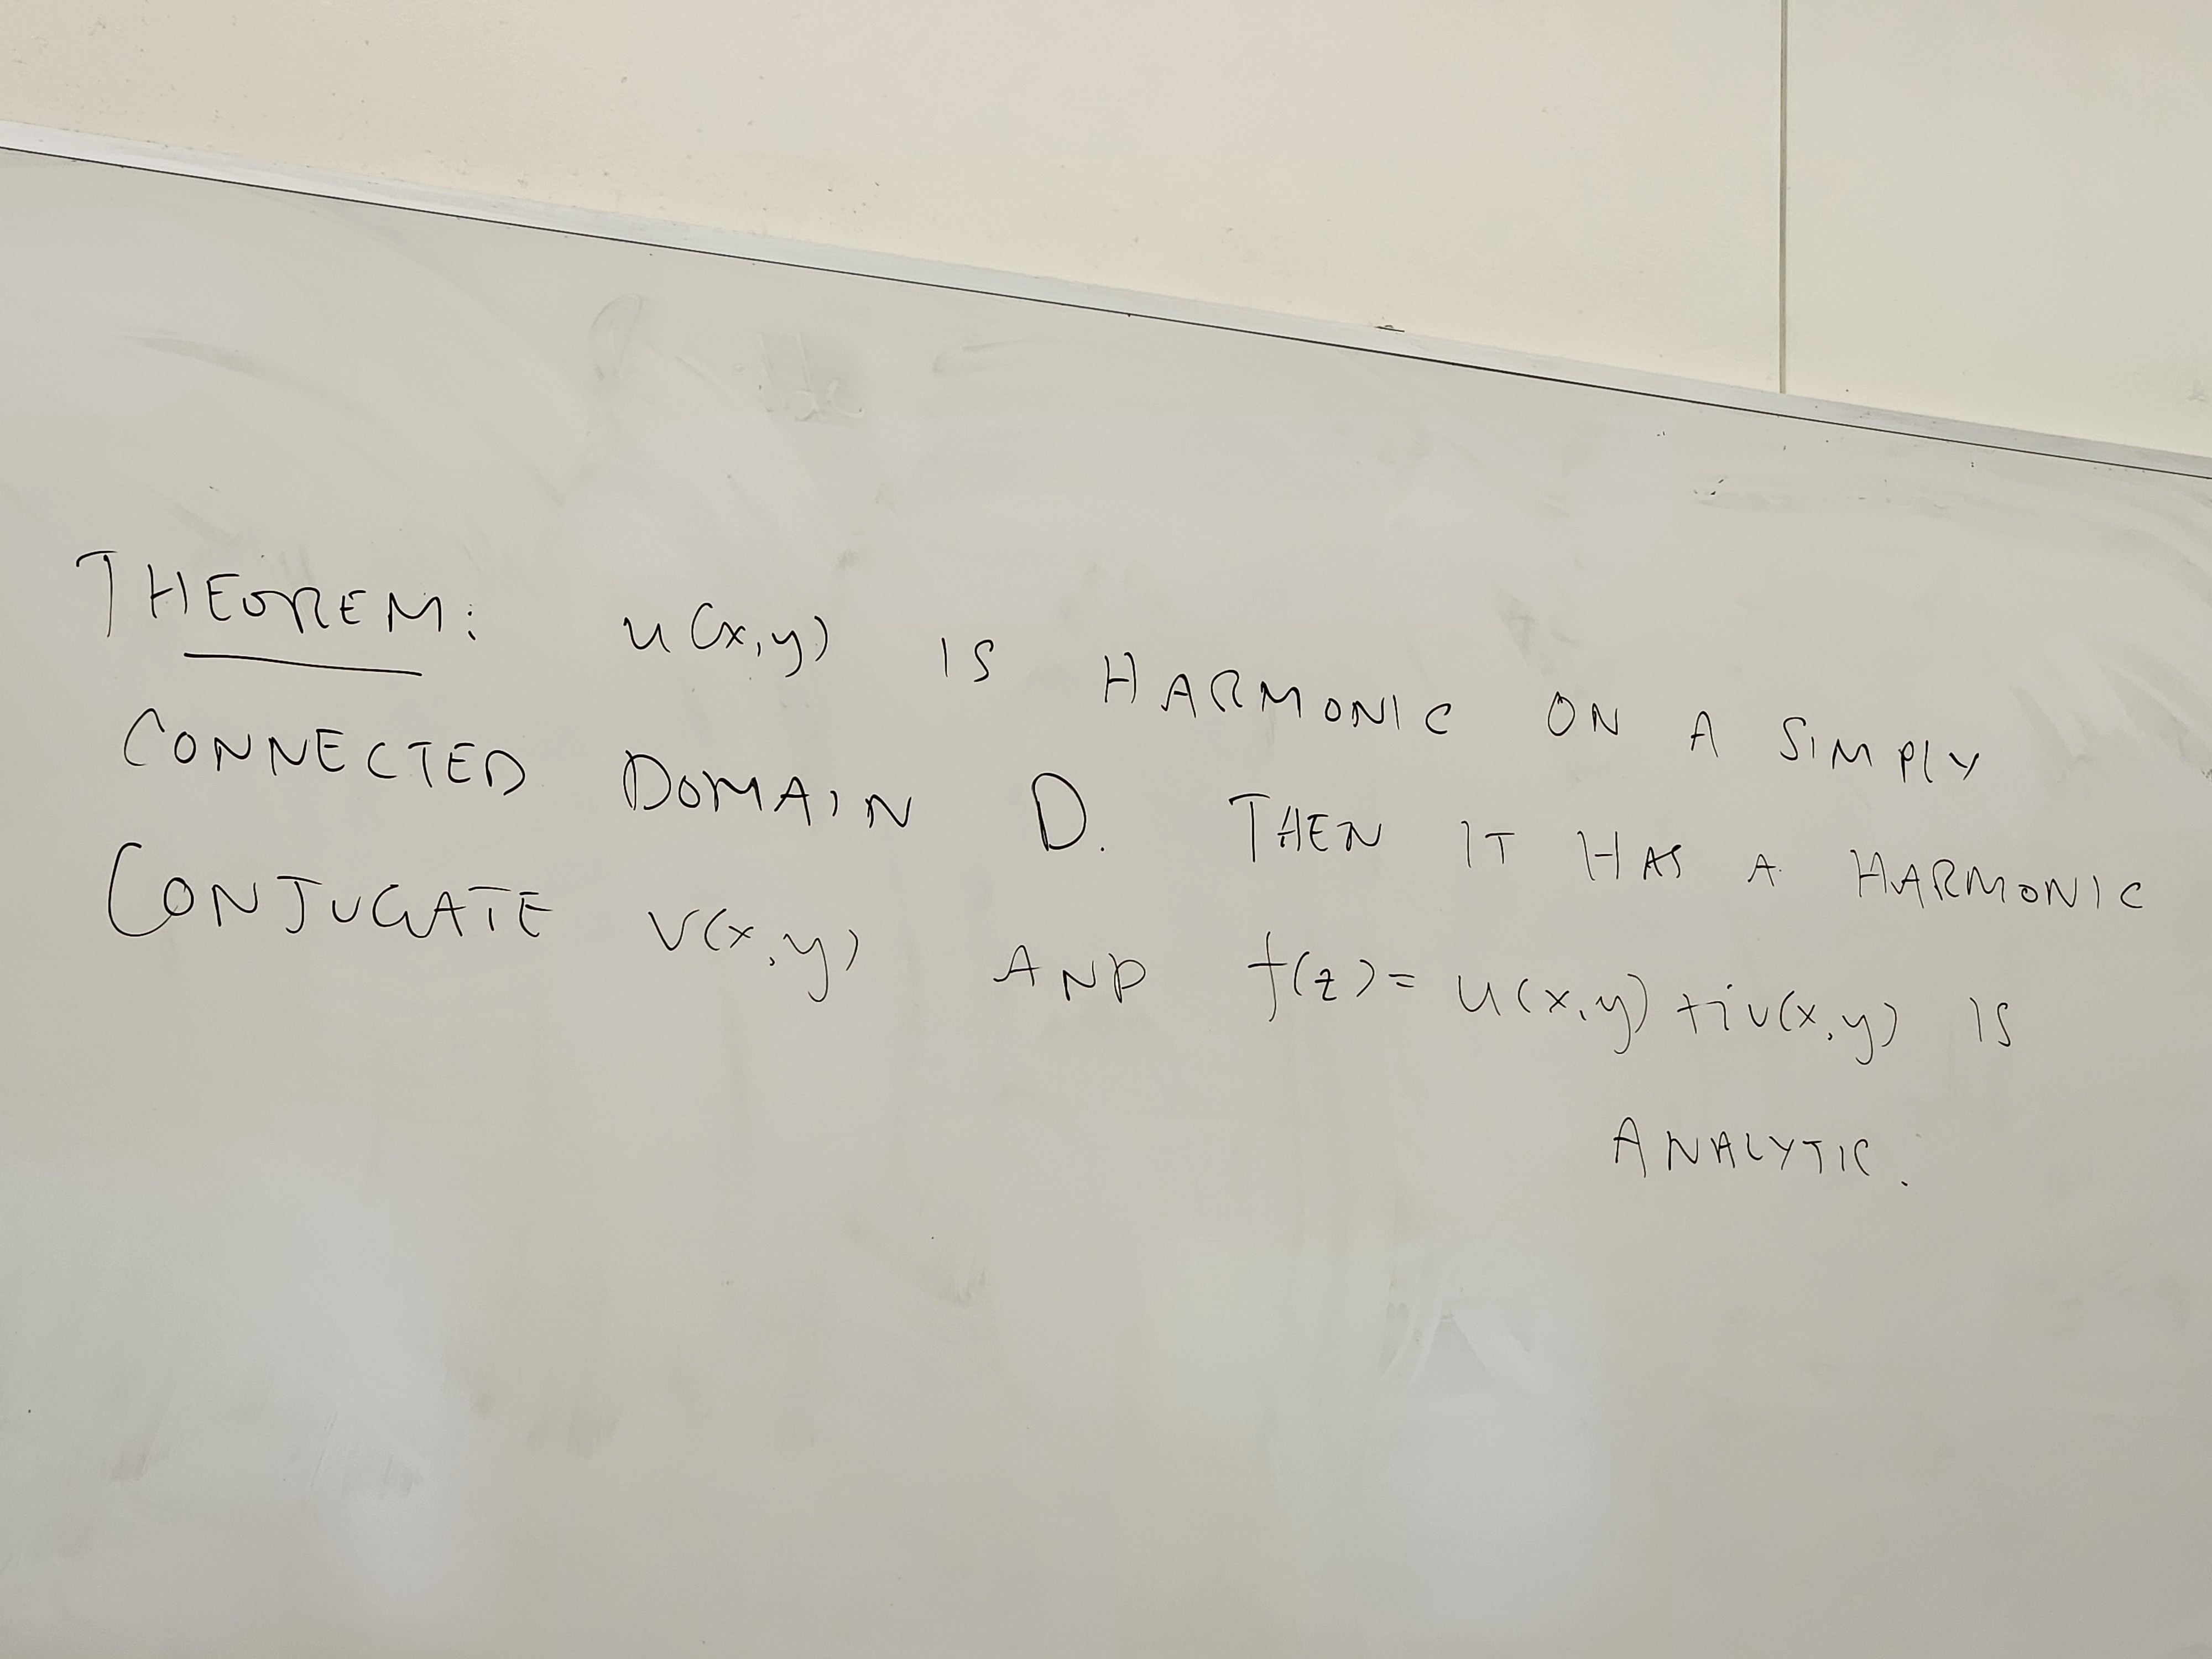 THEOREM: u(x,y) IS HARMONIC ON A SIMPLY
CONNECTED DOMAIN D. THEN IT HAS A HARMONIC
CONJUGATE v(x,y) AND f(z)= u(x,y)+iv(x,y) IS
ANALYTIC.